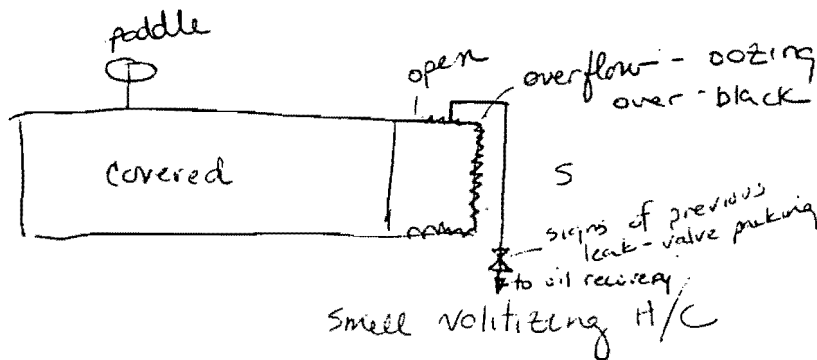 paddle
open
overflow - oozing
over - black
Covered
S
signs of previous
leak - valve packing
to oil recovery
Smell Volitizing H/C